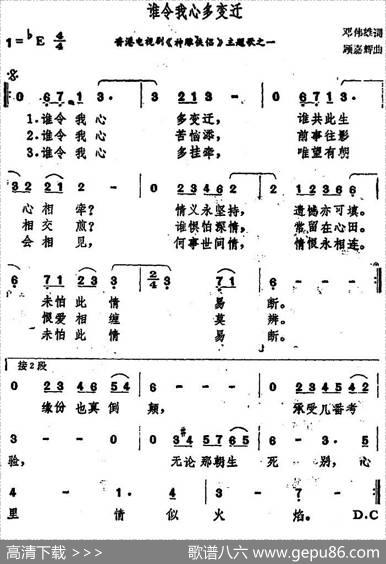 谁令我心多变迁
邓伟雄词
1=♭E 4/4 香港电视剧《神雕侠侣》主题歌之一
顾嘉辉曲
0 6 7 1 3· 3 2 1 3 - 0 6 7 1 3·
1.谁令我心 多变迁, 谁共此生
2.谁令我心 苦恼添, 前事往影
3.谁令我心 多挂牵, 唯望有朝
3 2 2 1 2 - 0 3 2 1 6 2 - 0 1 2 3 6 6
心相牵? 情义永坚持, 遗憾亦可填。
相交煎? 谁惧怕深情, 常留在心田。
会相见, 何事世间情, 情恨永相连。
6 7 1 2 3 3 2/4 3· 7 1 6 - -
未怕此情 易断。
恨爱相缠 莫辨。
未怕此情 易断。
接2段
0 2 3 4 6 5 4 6 - - - 0 2 3 4 5 4 2
缘份也真倒颠, 承受几番考
3 - - 0 0 3 #4 5 7 6 5 6 - 3· 5
验, 无论那朝生死别,心
4 - 1· 4 3 - 7 - - - -
里情似火焰。 D.C
高清下载 >>> 歌谱八六 www.gepu86.com